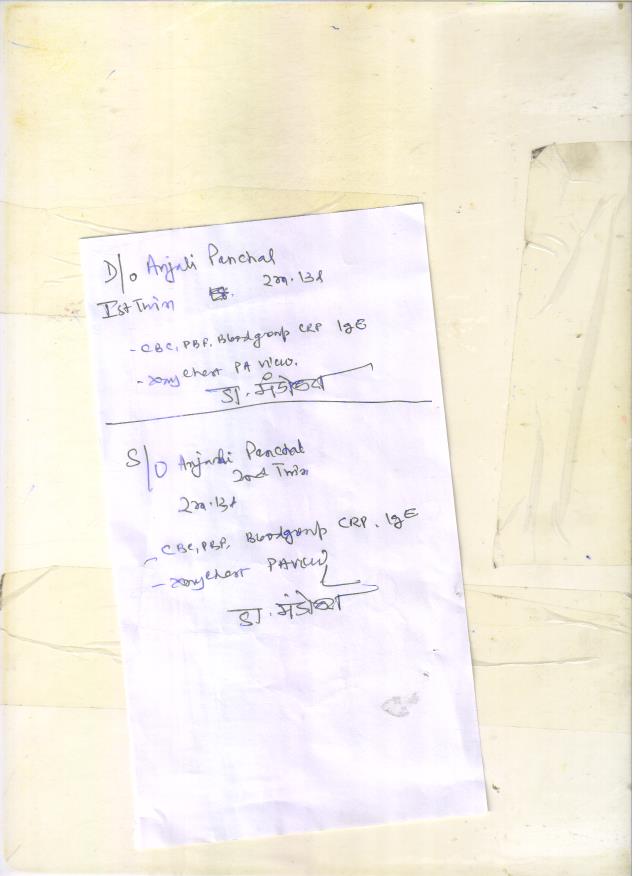 D/o Anjali Panchal
Ist Twin 2m.13d
- CBC, PBF, Bloodgroup CRP IgE
- xray Chest PA View.
डा. मंडोव्या
S/O Anjali Panchal
2nd Twin
2m.13d
- CBC, PBF, Bloodgroup CRP. IgE
- xray Chest PA View
डा. मंडोव्या